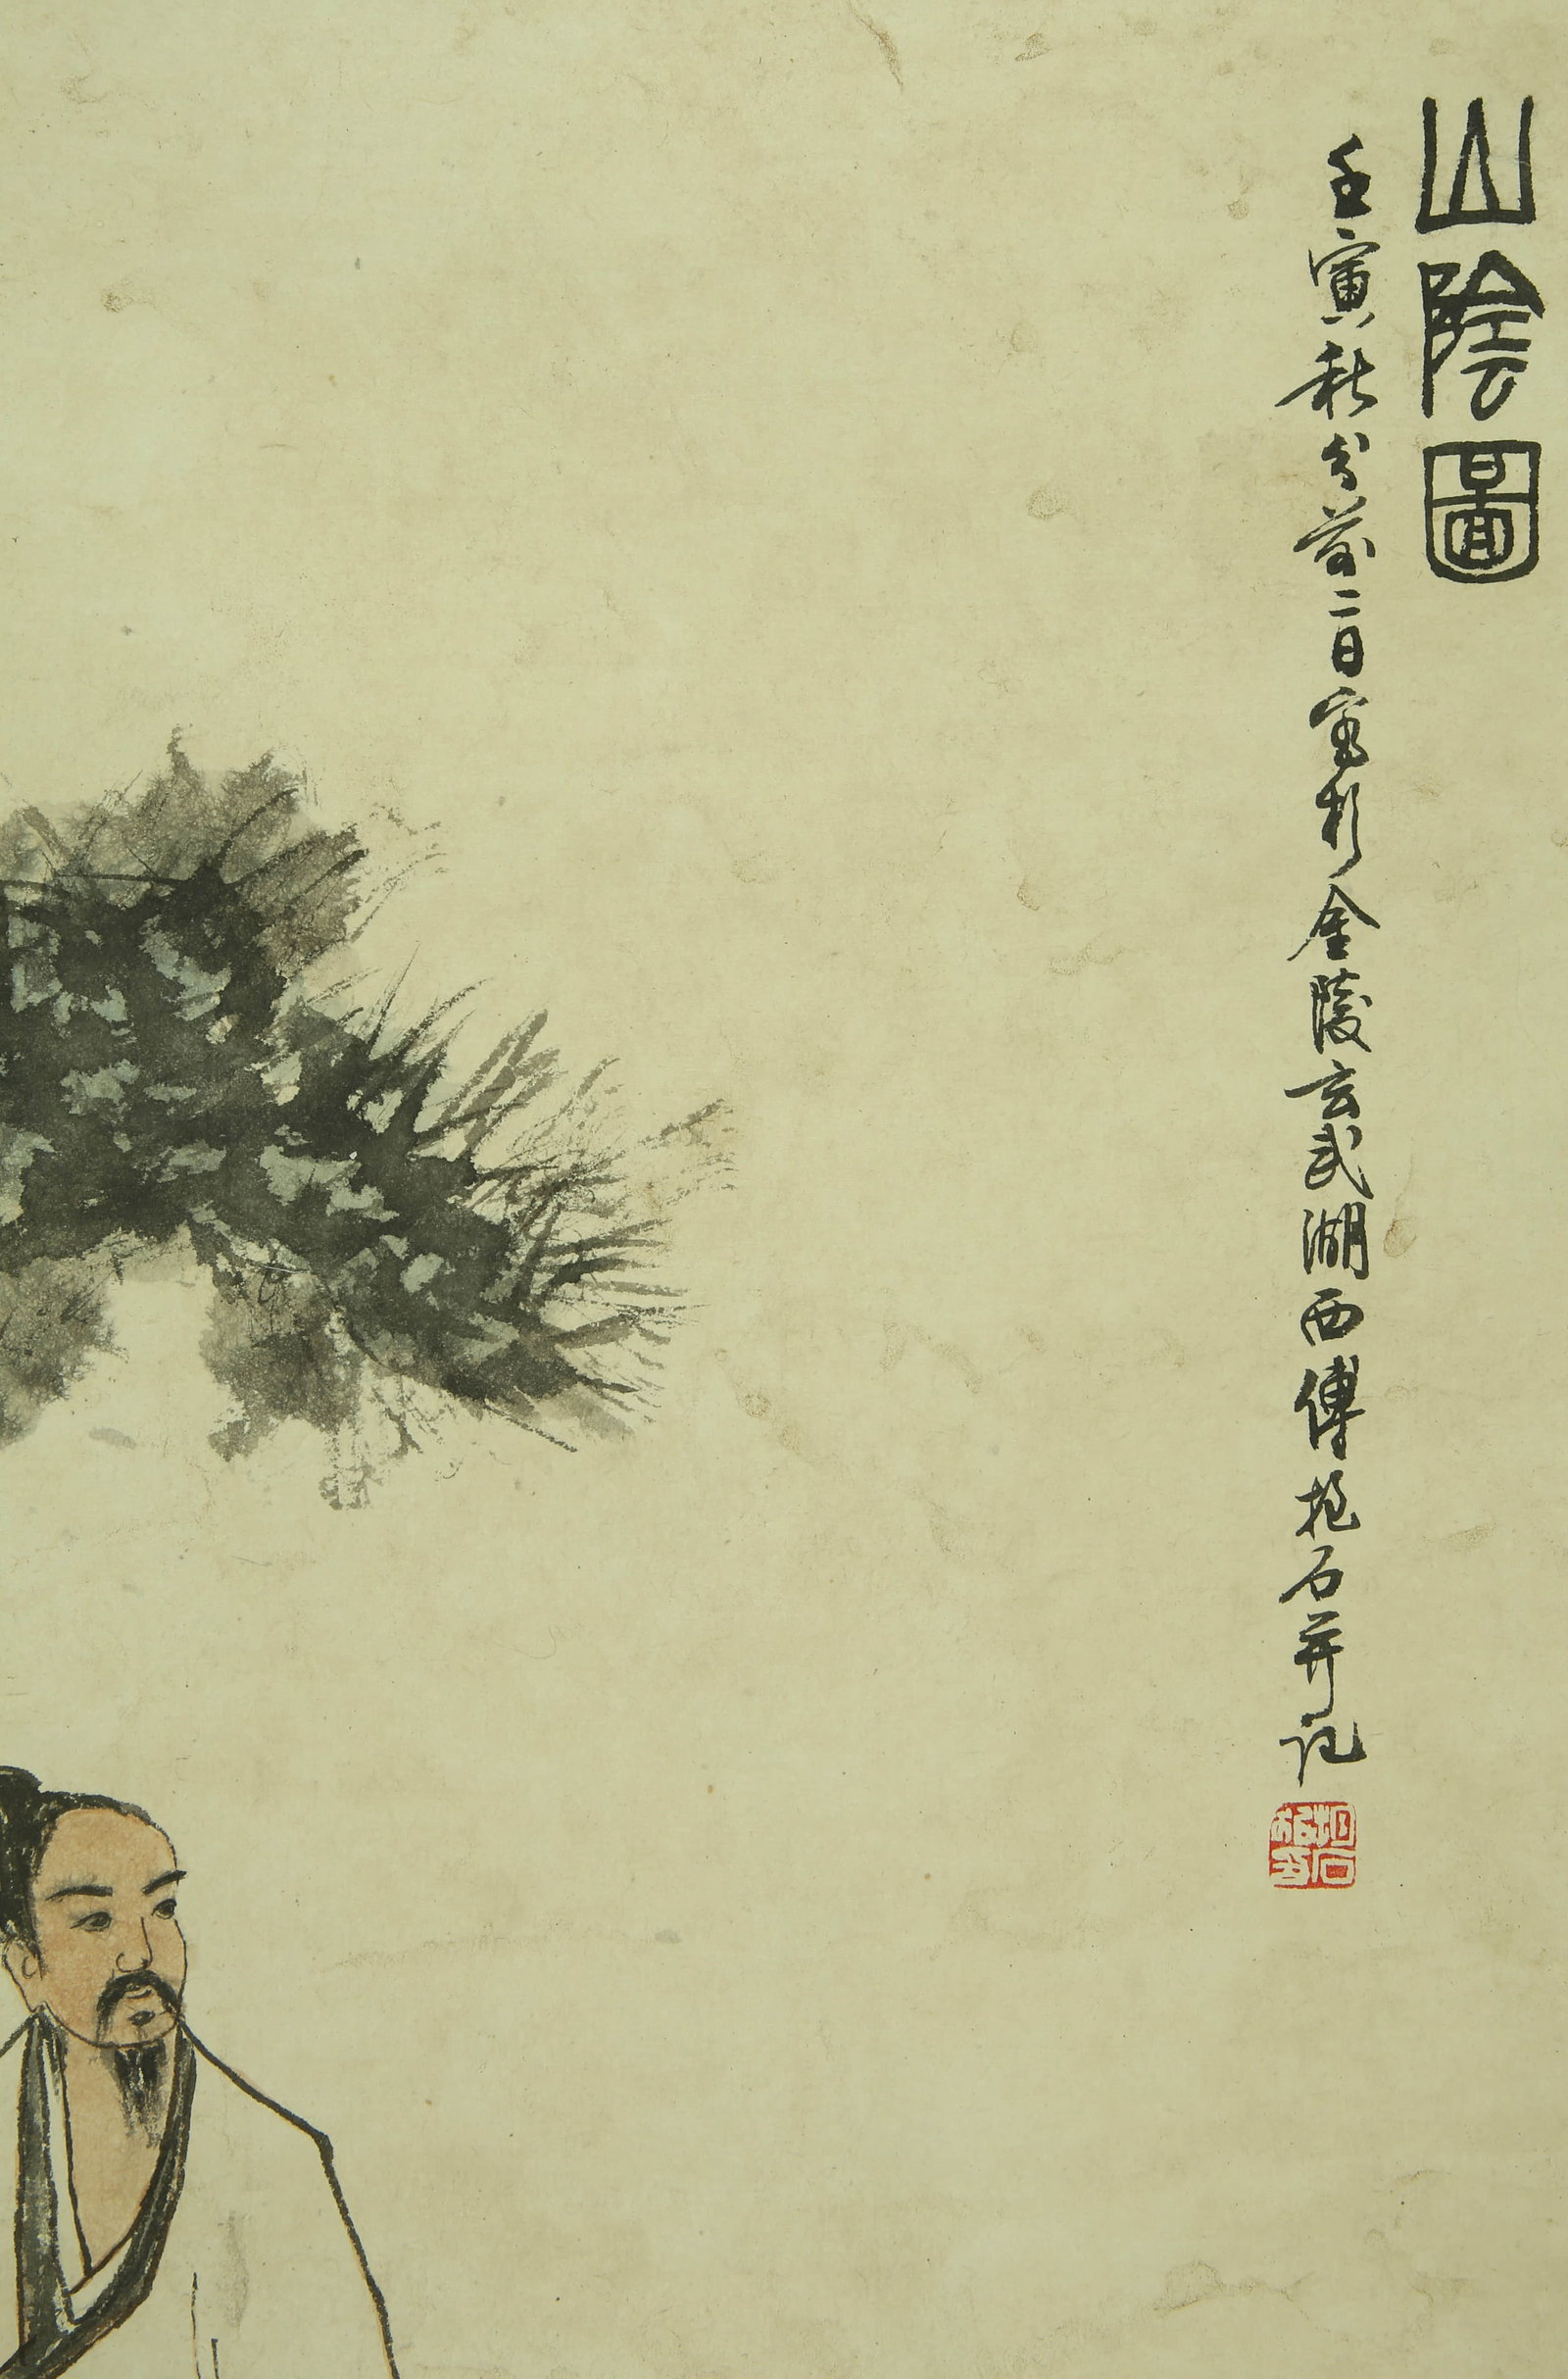 山陰圖
壬寅秋分前二日寫於金陵玄武湖西傅抱石并記